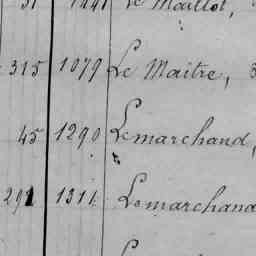 Le Maillot,
315 1079 Le Maitre,
45 1290 Lemarchand,
291 1311 Lemarchand